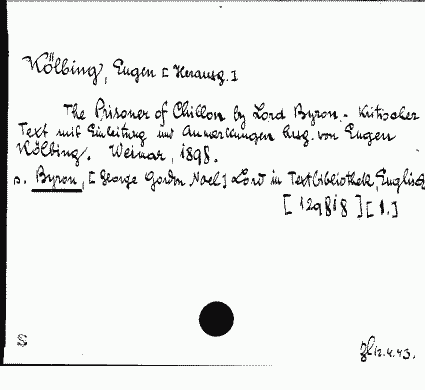 Kölbing, Eugen [Herausg.]
The Prisoner of Chillon by Lord Byron. - Kritischer
Text mit Einleitung und Anmerkungen hrsg. von Eugen
Kölbing. Weimar, 1898.
s. Byron, [George Gordon Noel] Lord in Textbibliothek, Englisch
[129818] [1.]
12.4.43.